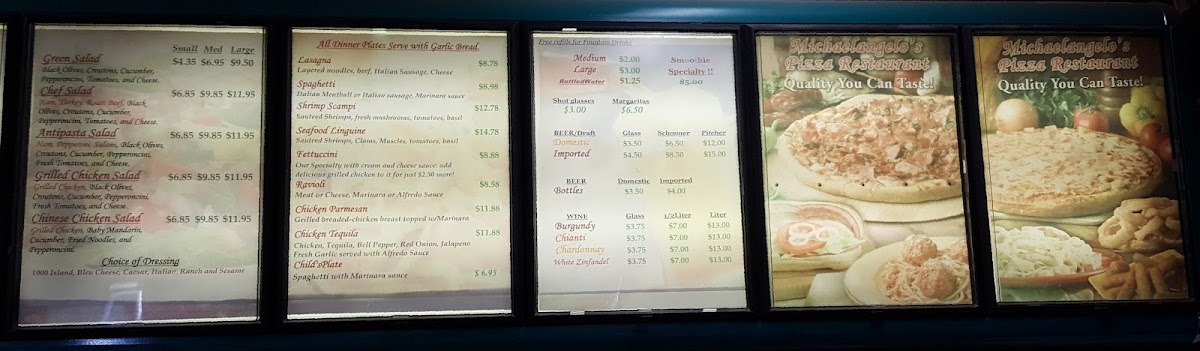 Small Med Large
Green Salad $4.35 $6.95 $9.50
Black Olives, Croutons, Cucumber,
Pepperoncini, Tomatoes, and Cheese.
Chef Salad $6.85 $9.85 $11.95
Ham, Turkey, Roast Beef, Black
Olives, Croutons, Cucumber,
Pepperoncini, Tomatoes, and Cheese.
Antipasta Salad $6,85 $9,85 $11,95
Ham, Pepperoni, Salami, Black Olives,
Croutons, Cucumber, Pepperoncini,
Fresh Tomatoes, and Cheese,
Grilled Chicken Salad $6.85 $9.85 $11.95
Grilled Chicken, Black Olives,
Croutons, Cucumber, Pepperoncini,
Fresh Tomatoes, and Cheese.
Chinese Chicken Salad $6.85 $9.85 $11.95
Grilled Chicken, Baby Mandarin,
Cucumber, Fried Noodles, and
Pepperoncini.
Choice of Dressing
1000 Island, Bleu Cheese, Caesar, Italian, Ranch and Sesame
All Dinner Plates Serve with Garlic Bread.
Lasagna $8.78
Layered noodles, beef, Italian Sausage, Cheese
Spaghetti $8.98
Italian Meatball or Italian sausage, Marinara sauce
Shrimp Scampi $12.78
Sautred Shrimps, fresh mushrooms, tomatoes, basil
Seafood Linguine $14.78
Sautred Shrimps, Clams, Muscles, tomatoes, basil
Fettuccini $8.88
Our Specialty with cream and cheese sauce: add
delicious grilled chicken to it for just $2.50 more!
Ravioli $8.58
Meat or Cheese, Marinara or Alfredo Sauce
Chicken Parmesan $11.88
Grilled breaded-chicken breast topped w/Marinara
Chicken Tequila $11.88
Chicken, Tequila, Bell Pepper, Red Onion, Jalapeno
Fresh Garlic served with Alfredo Sauce
Child'sPlate
Spaghetti with Marinara sauce $ 6.95
Free refills for Fountain Drinks
Medium $2.00 Smoothie
Large $3.00 Specialty !!
BottledWater $1.25 $5.00
Shot glasses Margaritas
$3.00 $6.50
BEER/Draft Glass Schooner Pitcher
Domestic $3.50 $6.50 $12.00
Imported $4.50 $8.50 $15.00
BEER Domestic Imported
Bottles $3.50 $4.00
WINE Glass 1/2Liter Liter
Burgundy $3.75 $7.00 $13.00
Chianti $3.75 $7.00 $13.00
Chardonnay $3.75 $7.00 $13.00
White Zinfandel $3.75 $7.00 $13.00
Michaelangelo's
Pizza Restaurant
Quality You Can Taste!
Michaelangelo's
Pizza Restaurant
Quality You Can Taste!